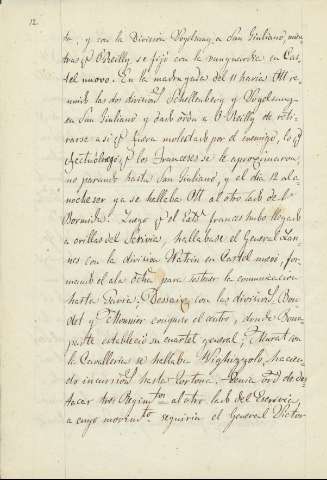 12
da; y con la Division Vogelsang a San Giuliano, mien
tras qe O'Reilly se fijó con la vanguardia en Cas
tel nuovo. En la madrugada del 11 havia Ott re
unido las dos division.s Schellenberg y Vogelsang
en San Giuliano y dado orden a O'Reilly de reti
rarse a si qe fuera molestado por el enemigo, lo qe
efectuó luego qe los Franceses se le aproximaron,
no parando hasta San Giuliano, y el dia 12 al a
nochecer ya se hallaba Ott al otro lado del
Bormida. Luego qe el Exto frances hubo llegado
a orillas del Scrivia, hallabase el General Lan
nes con la division Watrin en Castel novo, for
mando el ala dcha para sostener la comunicacion
hasta Pavia; Dessaix con las division.s Bou
det y Monnier componia el centro, donde Bona
parte estableció su cuartel general; Murat con
la Cavalleria se hallaba Wighizzolo, hacien
do incursion.s hasta Tortona. Tenia orden de des
tacar tres Regimtos al otro lado del Escrivia,
a cuyo movimto seguiria el General Victor